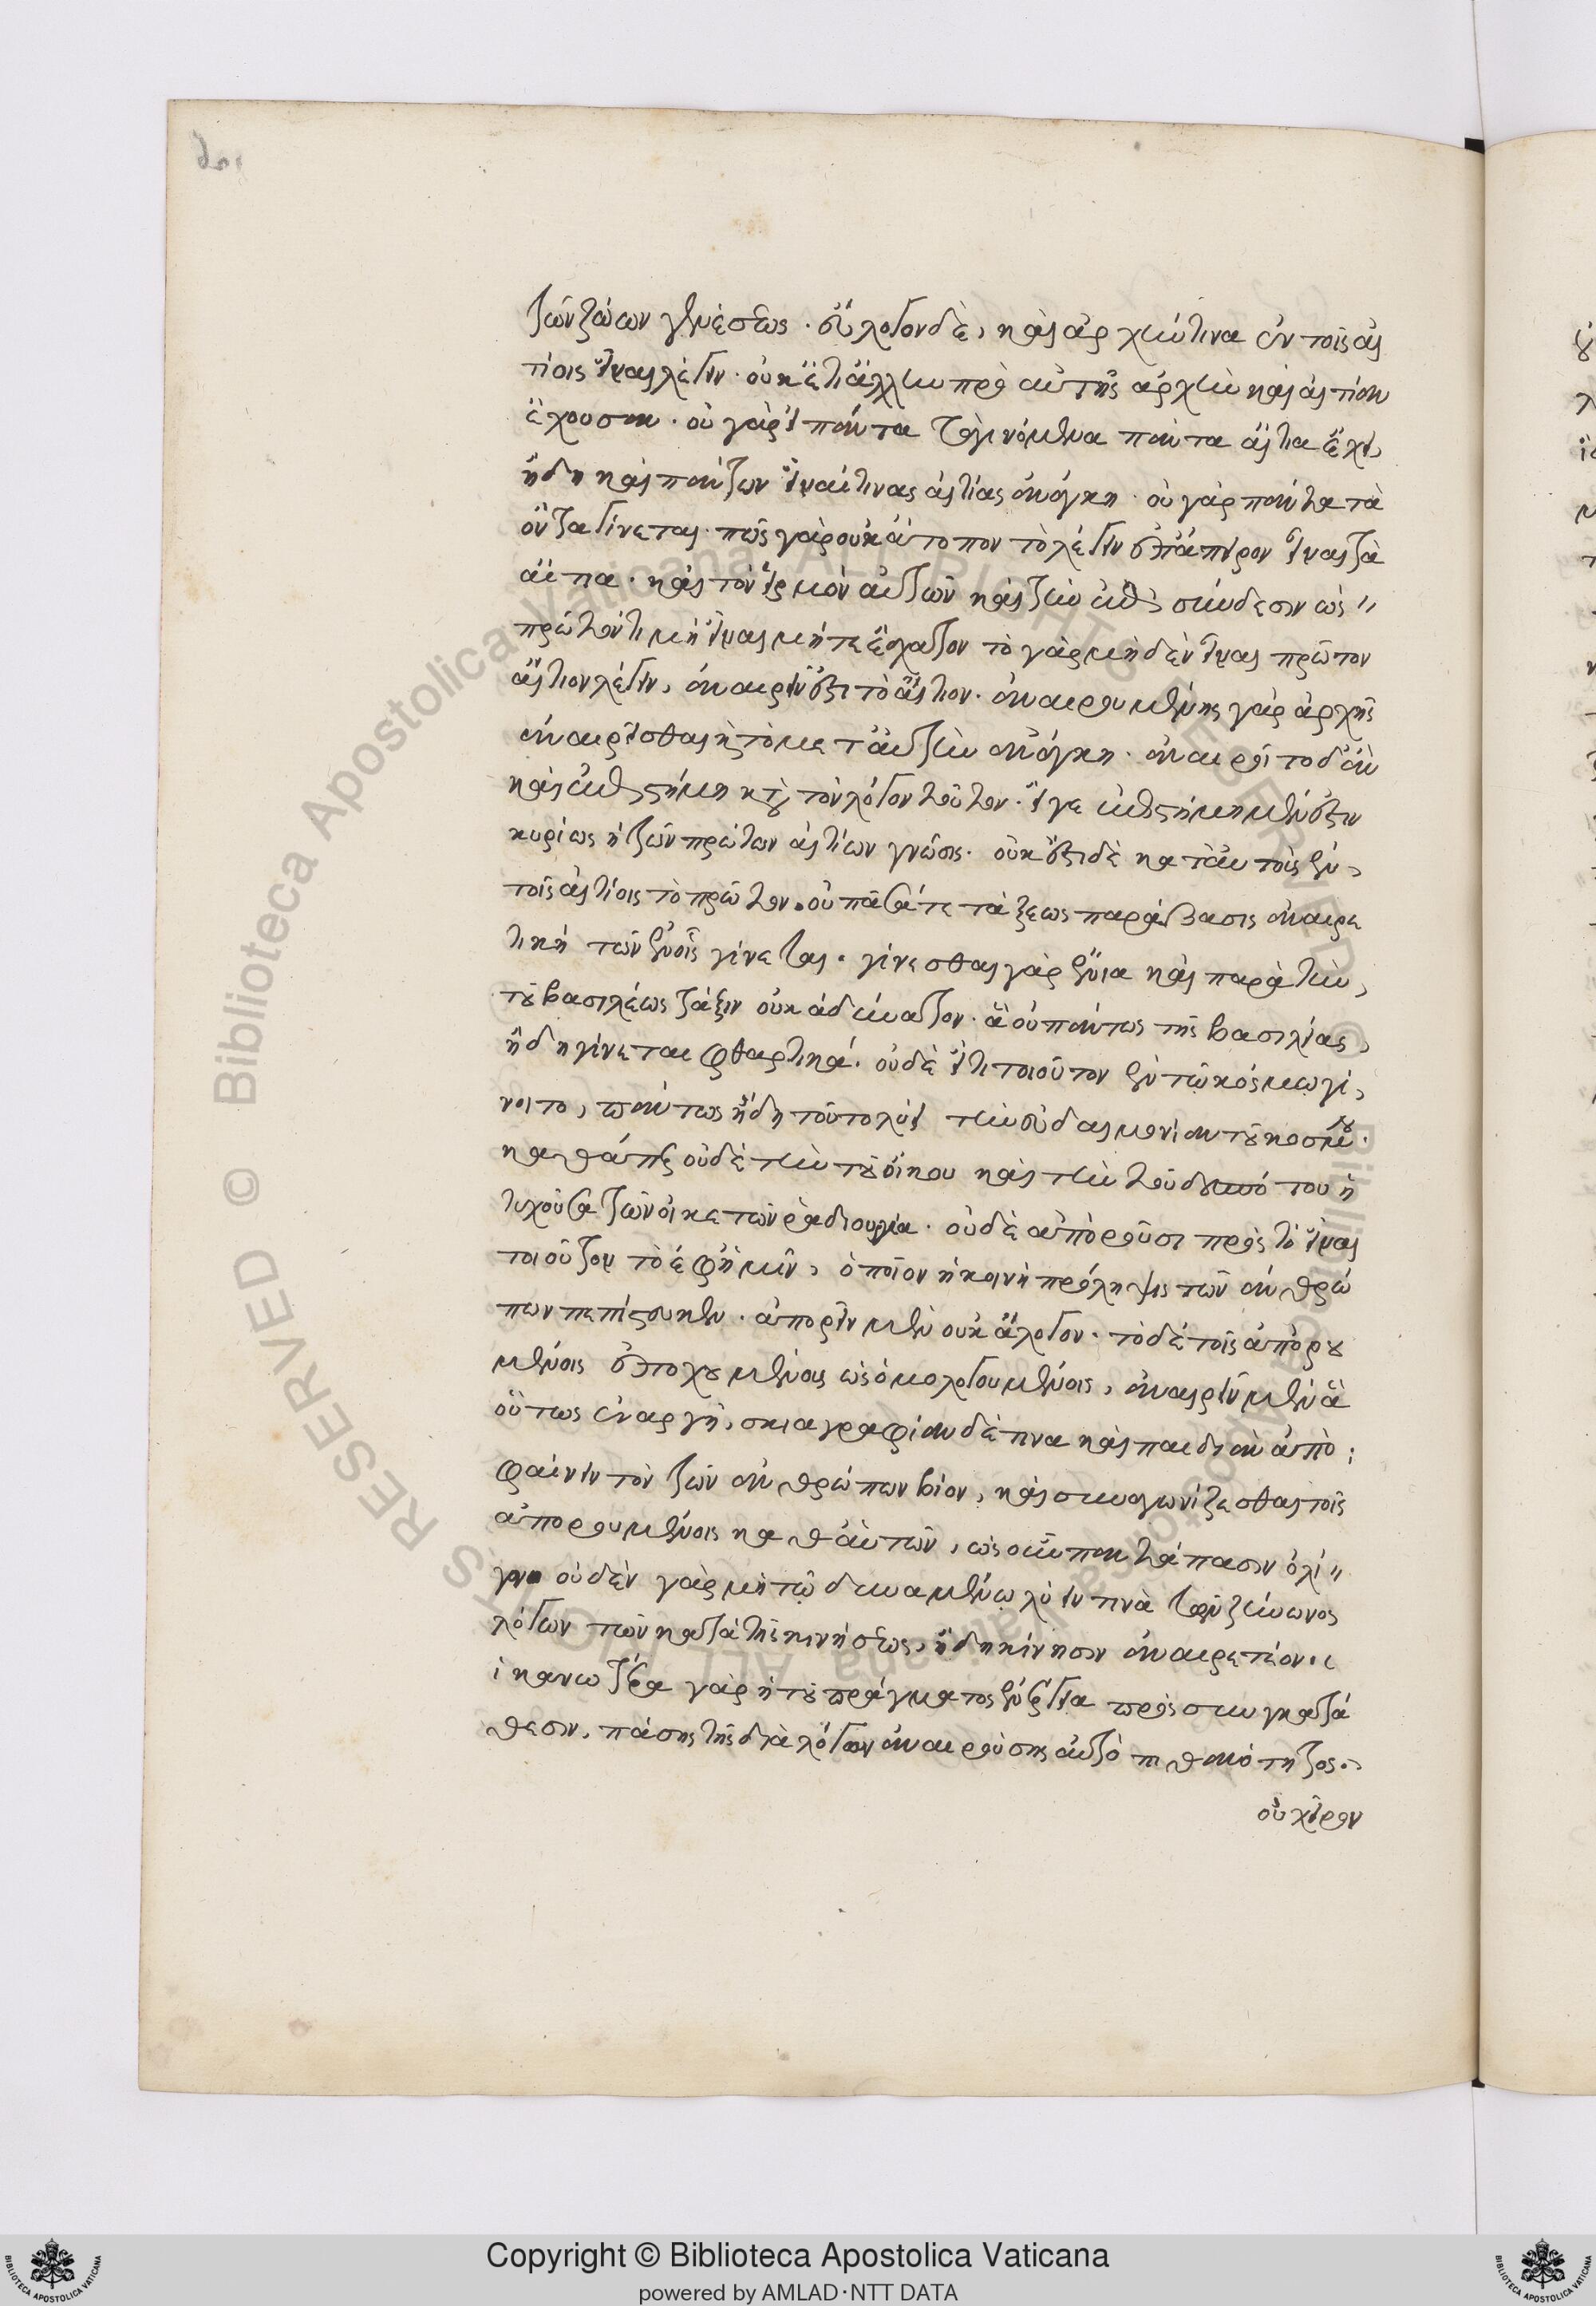 τῶν ζώων γενέσεως. εὔλογον δὲ, καὶ ἀρχήν τινα ἐν τοῖς αἰ
τίοις εἶναι λέγειν. οὐκ ἔτι ἄλλην πρὸ αὐτῆς ἀρχὴν καὶ αἰτίαν
ἔχουσαν. οὐ γὰρ εἰ πάντα τὰ γινόμενα πάντα αἴτια ἔχει,
ἤδη καὶ πάντων εἶναί τινας αἰτίας ἀνάγκη. οὐ γὰρ πάντα τὰ
ὄντα γίνεται. πῶς γὰρ οὐκ ἄτοπον τὸ λέγειν ἐπ' ἄπειρον εἶναι τὰ
αἴτια. καὶ τὸν εἱρμὸν αὐτῶν καὶ τὴν ἐπισύνδεσιν ὡς
πρῶτόν τι μὴ εἶναι μήτε ἔσχατον τὸ γὰρ μηδὲν εἶναι πρῶτον
αἴτιον λέγειν, ἀναιρεῖν ἐστι τὸ αἴτιον. ἀναιρουμένης γὰρ ἀρχῆς
ἀναιρεῖσθαι καὶ τὸ μετ' αὐτὴν ἀνάγκη. ἀναιροῖτο δ' ἂν
καὶ ἐπιστήμη κατὰ τὸν λόγον τοῦτον. εἴ γε ἐπιστήμη μέν ἐστιν
κυρίως ἡ τῶν πρώτων αἰτίων γνῶσις. οὐκ ἔστι δὲ κατ' αὐτοὺς ἐν
τοῖς αἰτίοις τὸ πρῶτον. οὐ πᾶσά τε τάξεως παράβασις ἀναιρε
τικὴ τῶν ἐν οἷς γίνεται. γίνεσθαι γὰρ ἔνια καὶ παρὰ τὴν
τοῦ βασιλέως τάξιν οὐκ ἀδύνατον. ἃ οὐ πάντως τῆς βασιλείας
ἤδη γίνεται φθαρτικά. οὐδὲ εἴ τι τοιοῦτον ἐν τῷ κόσμῳ γί
νοιτο, πάντως ἤδη τοῦτο λύει τὴν εὐδαιμονίαν τοῦ κόσμου.
καθάπερ οὐδὲ τὴν τοῦ οἴκου καὶ τὴν τοῦ δεσπότου ἡ
τυχοῦσα τῶν οἰκετῶν ῥαδιουργία. οὐδὲ ἀποροῦσι πρὸς τὸ εἶναι
τοιοῦτον τὸ ἐφ' ἡμῖν, ὁποῖον ἡ κοινὴ πρόληψις τῶν ἀνθρώ
πων πεπίστευκεν. ἀπορεῖν μὲν οὐκ ἄλογον. τὸ δὲ τοῖς ἀπορου
μένοις ἐποχουμένους ὡς ὁμολογουμένοις, ἀναιρεῖν μὲν ἃ
οὕτως ἐναργῆ, σκιαγραφίαν δέ τινα καὶ παιδιὰν ἀπο
φαίνειν τὸν τῶν ἀνθρώπων βίον, καὶ συναγωνίζεσθαι τοῖς
ἀπορουμένοις καθ' αὑτῶν, ὡς οὐ παντάπασιν ὀλί
γον οὐδὲν γὰρ μὴ τῷ δυναμένῳ λύειν τινὰ τῶν ζήνωνος
λόγων τῶν κατὰ τῆς κινήσεως, ἤδη κίνησιν ἀναιρετέον.
ἱκανωτέρα γὰρ ἡ τοῦ πράγματος ἐνάργεια πρὸς συγκατά
θεσιν, πάσης τῆς διὰ λόγων ἀναιρούσης αὐτὸ πιθανότητος.
οὐ χεῖρον